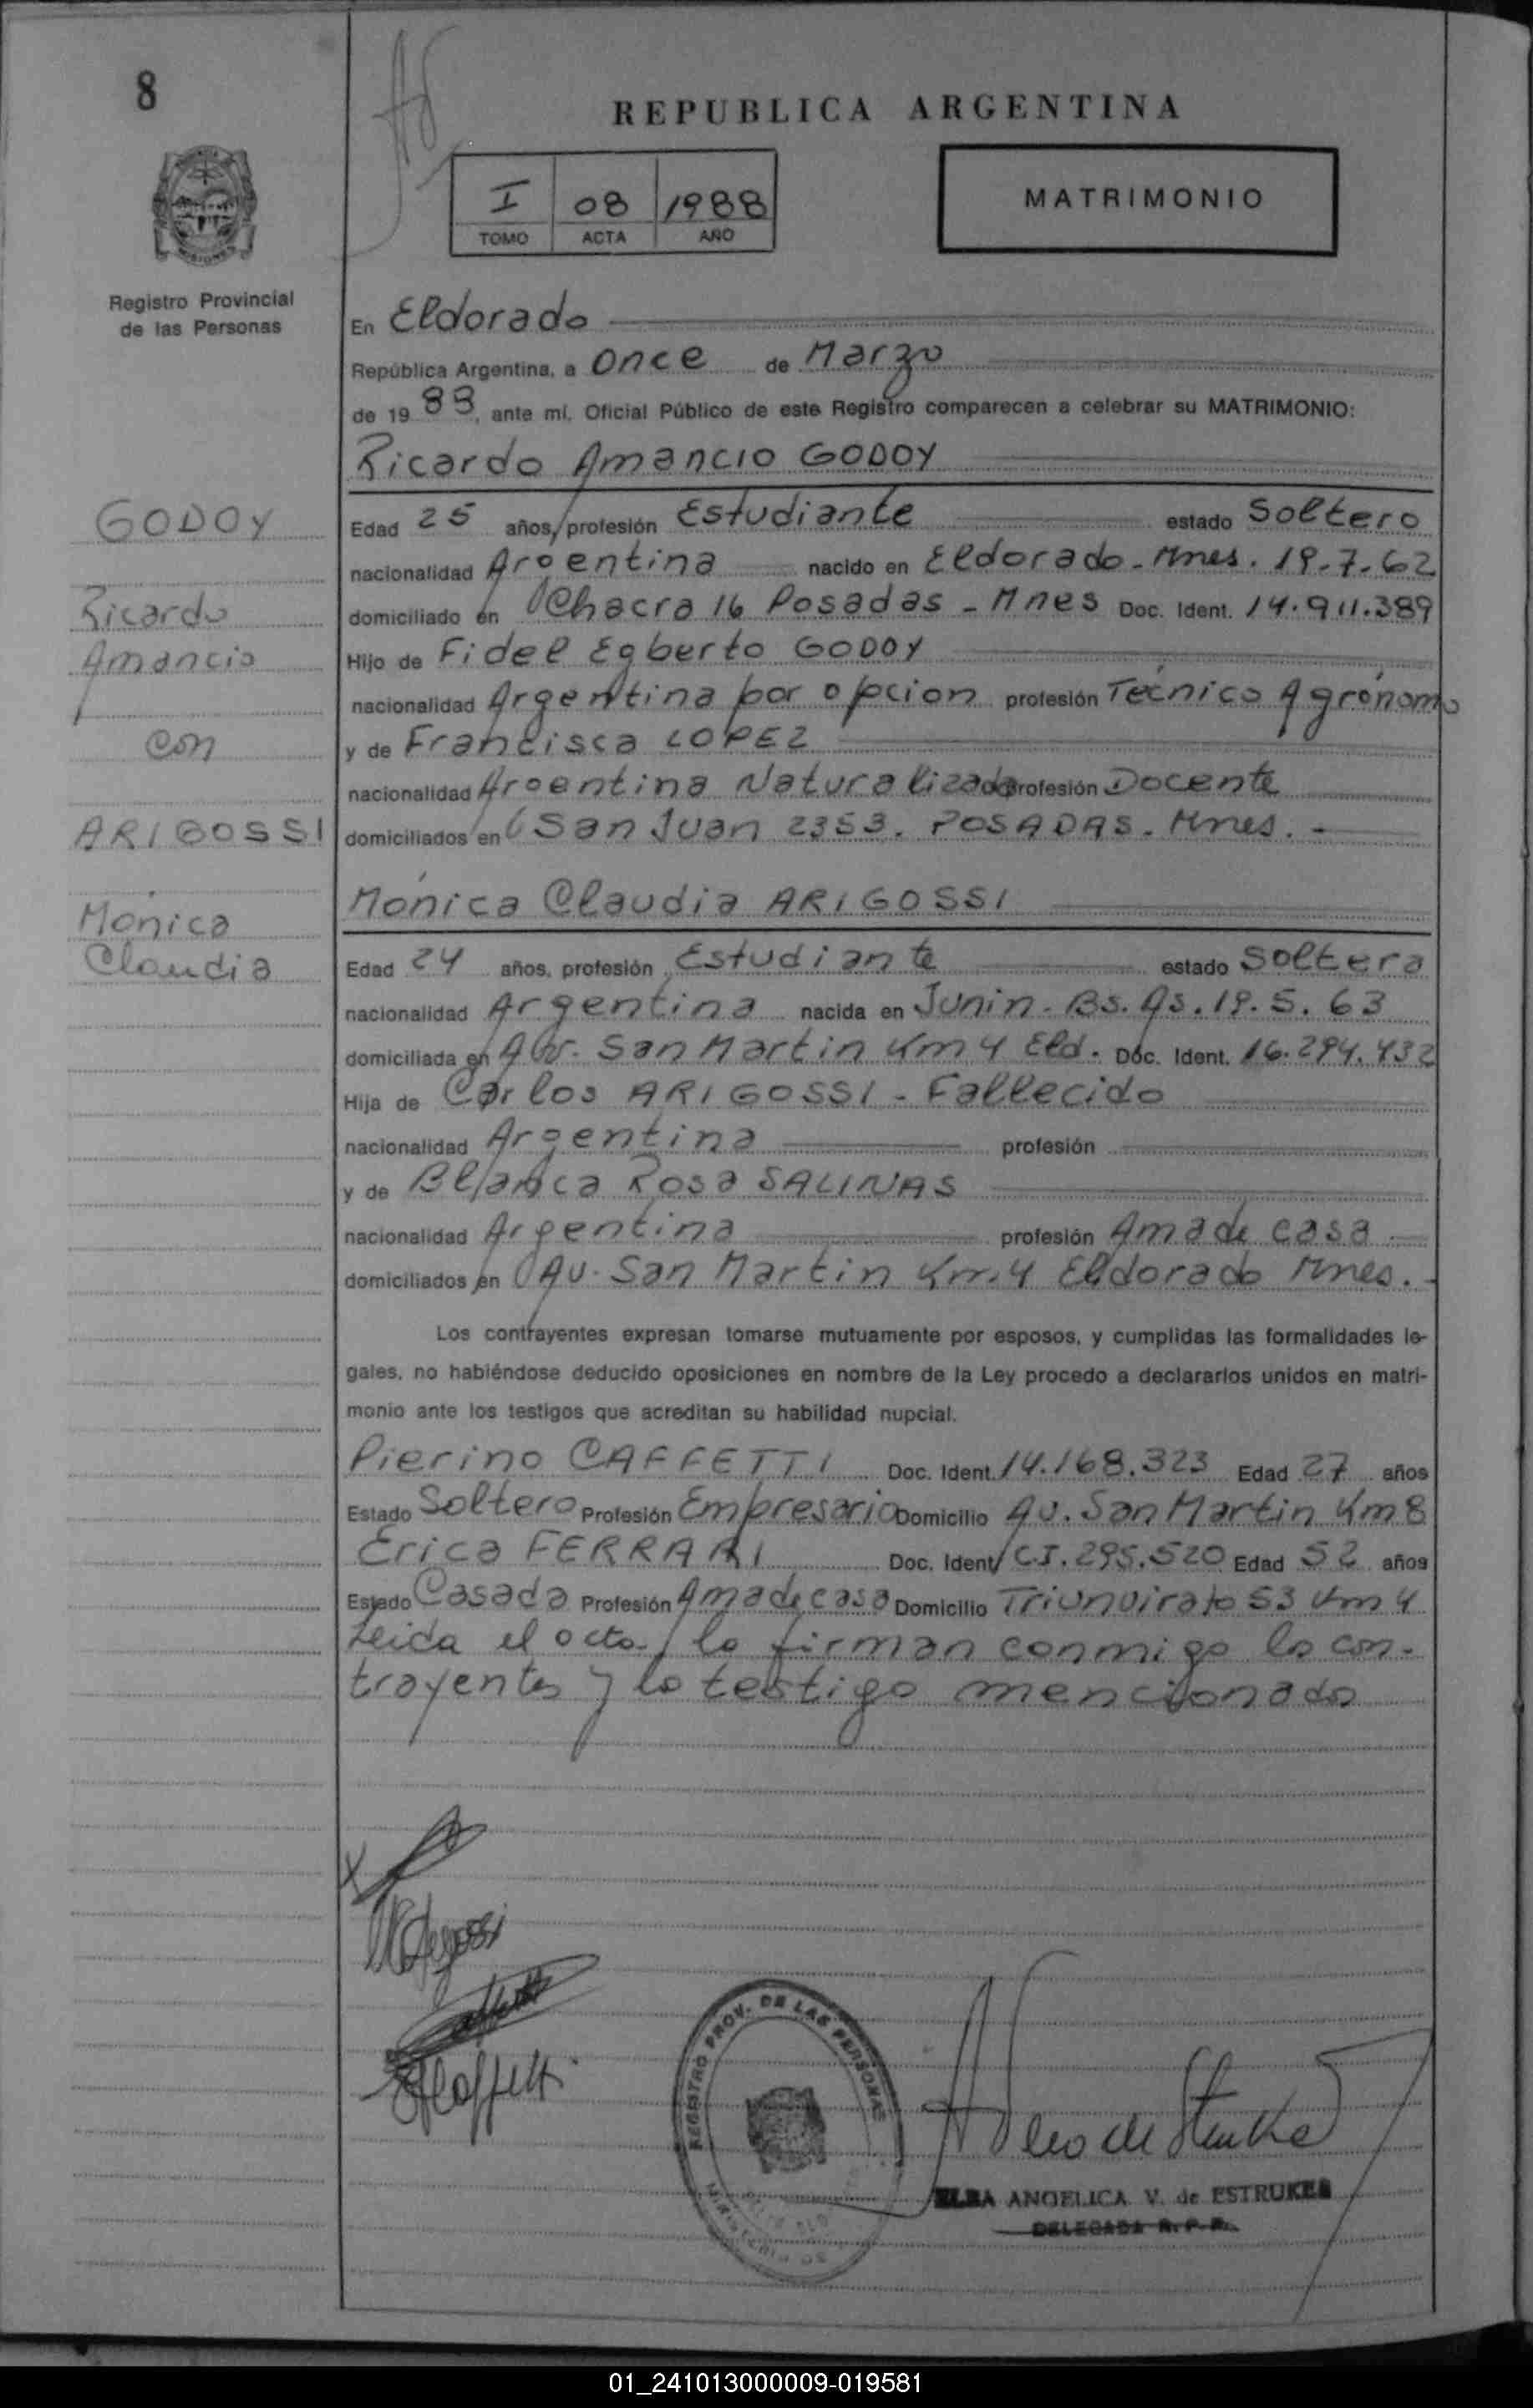 8
REPUBLICA ARGENTINA
I 08 1988
TOMO ACTA AÑO
MATRIMONIO
Registro Provincial
de las Personas
En Eldorado
República Argentina, a Once de Marzo
de 19 88, ante mí, Oficial Público de este Registro comparecen a celebrar su MATRIMONIO:
Ricardo Amancio GODOY
GODOY
Ricardo
Amancio
con
ARIGOSSI
Mónica
Claudia
Edad 25 años, profesión Estudiante estado Soltero
nacionalidad Argentina nacido en Eldorado - Mnes. 19-7-62
domiciliado en Chacra 16 Posadas - Mnes Doc. Ident. 14.911.389
Hijo de Fidel Egberto GODOY
nacionalidad Argentina por opcion profesión Técnico Agrónomo
y de Francisca LOPEZ
nacionalidad Argentina Naturalizada profesión Docente
domiciliados en San Juan 2353. POSADAS. Mnes. -
Mónica Claudia ARIGOSSI
Edad 24 años, profesión Estudiante estado Soltera
nacionalidad Argentina nacida en Junin - Bs. As. 19. 5. 63
domiciliada en Av. San Martin Km 4 Eld. Doc. Ident. 16.294.432
Hija de Carlos ARIGOSSI - Fallecido
nacionalidad Argentina profesión
y de Blanca Rosa SALINAS
nacionalidad Argentina profesión Ama de casa
domiciliados en Av. San Martin Km. 4 Eldorado Mnes. -
Los contrayentes expresan tomarse mutuamente por esposos, y cumplidas las formalidades le-
gales, no habiéndose deducido oposiciones en nombre de la Ley procedo a declararlos unidos en matri-
monio ante los testigos que acreditan su habilidad nupcial.
Pierino CAFFETTI Doc. Ident. 14.168.323 Edad 27 años
Estado Soltero Profesión Empresario Domicilio Av. San Martin Km 8
Erica FERRARI Doc. Ident. C.I. 295.520 Edad 52 años
Estado Casada Profesión Ama de casa Domicilio Triunvirato 53 Km 4
Leida el acta, la firman conmigo los con-
trayentes y los testigos mencionados
REGISTRO PROV. DE LAS PERSONAS
ELBA ANGELICA V. de ESTRUKES
DELEGADA R. P. P.
01_241013000009-019581